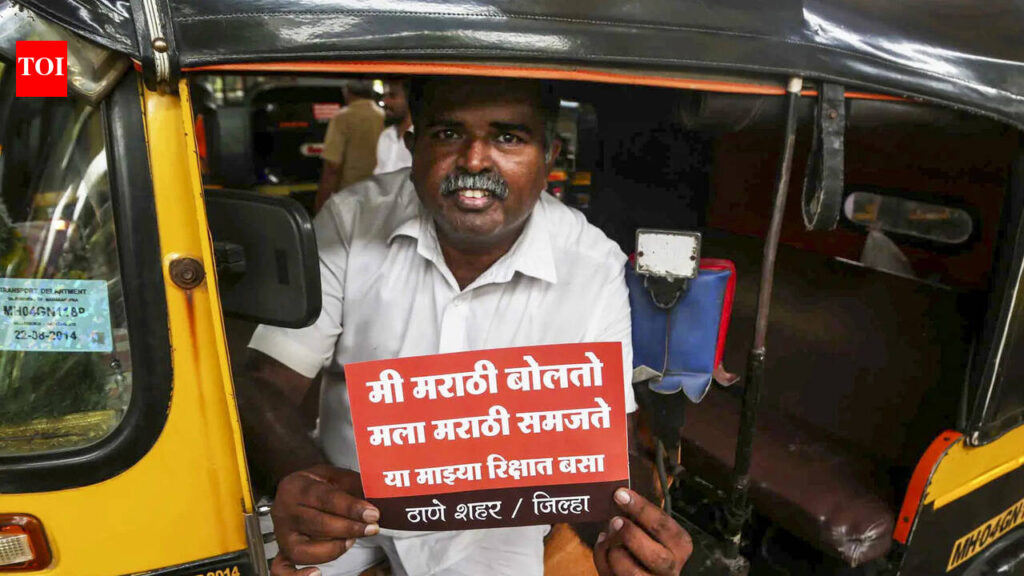 TOI
TRANSPORT DEPARTMENT
22-08-2014
मी मराठी बोलतो
मला मराठी समजते
या माझ्या रिक्षात बसा
ठाणे शहर / जिल्हा
2014
MH04GN